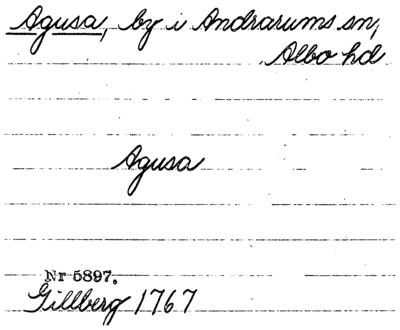 Agusa, by i Andrarums sn,
Albo hd
Agusa
Nr 5897.
Gillberg 1767